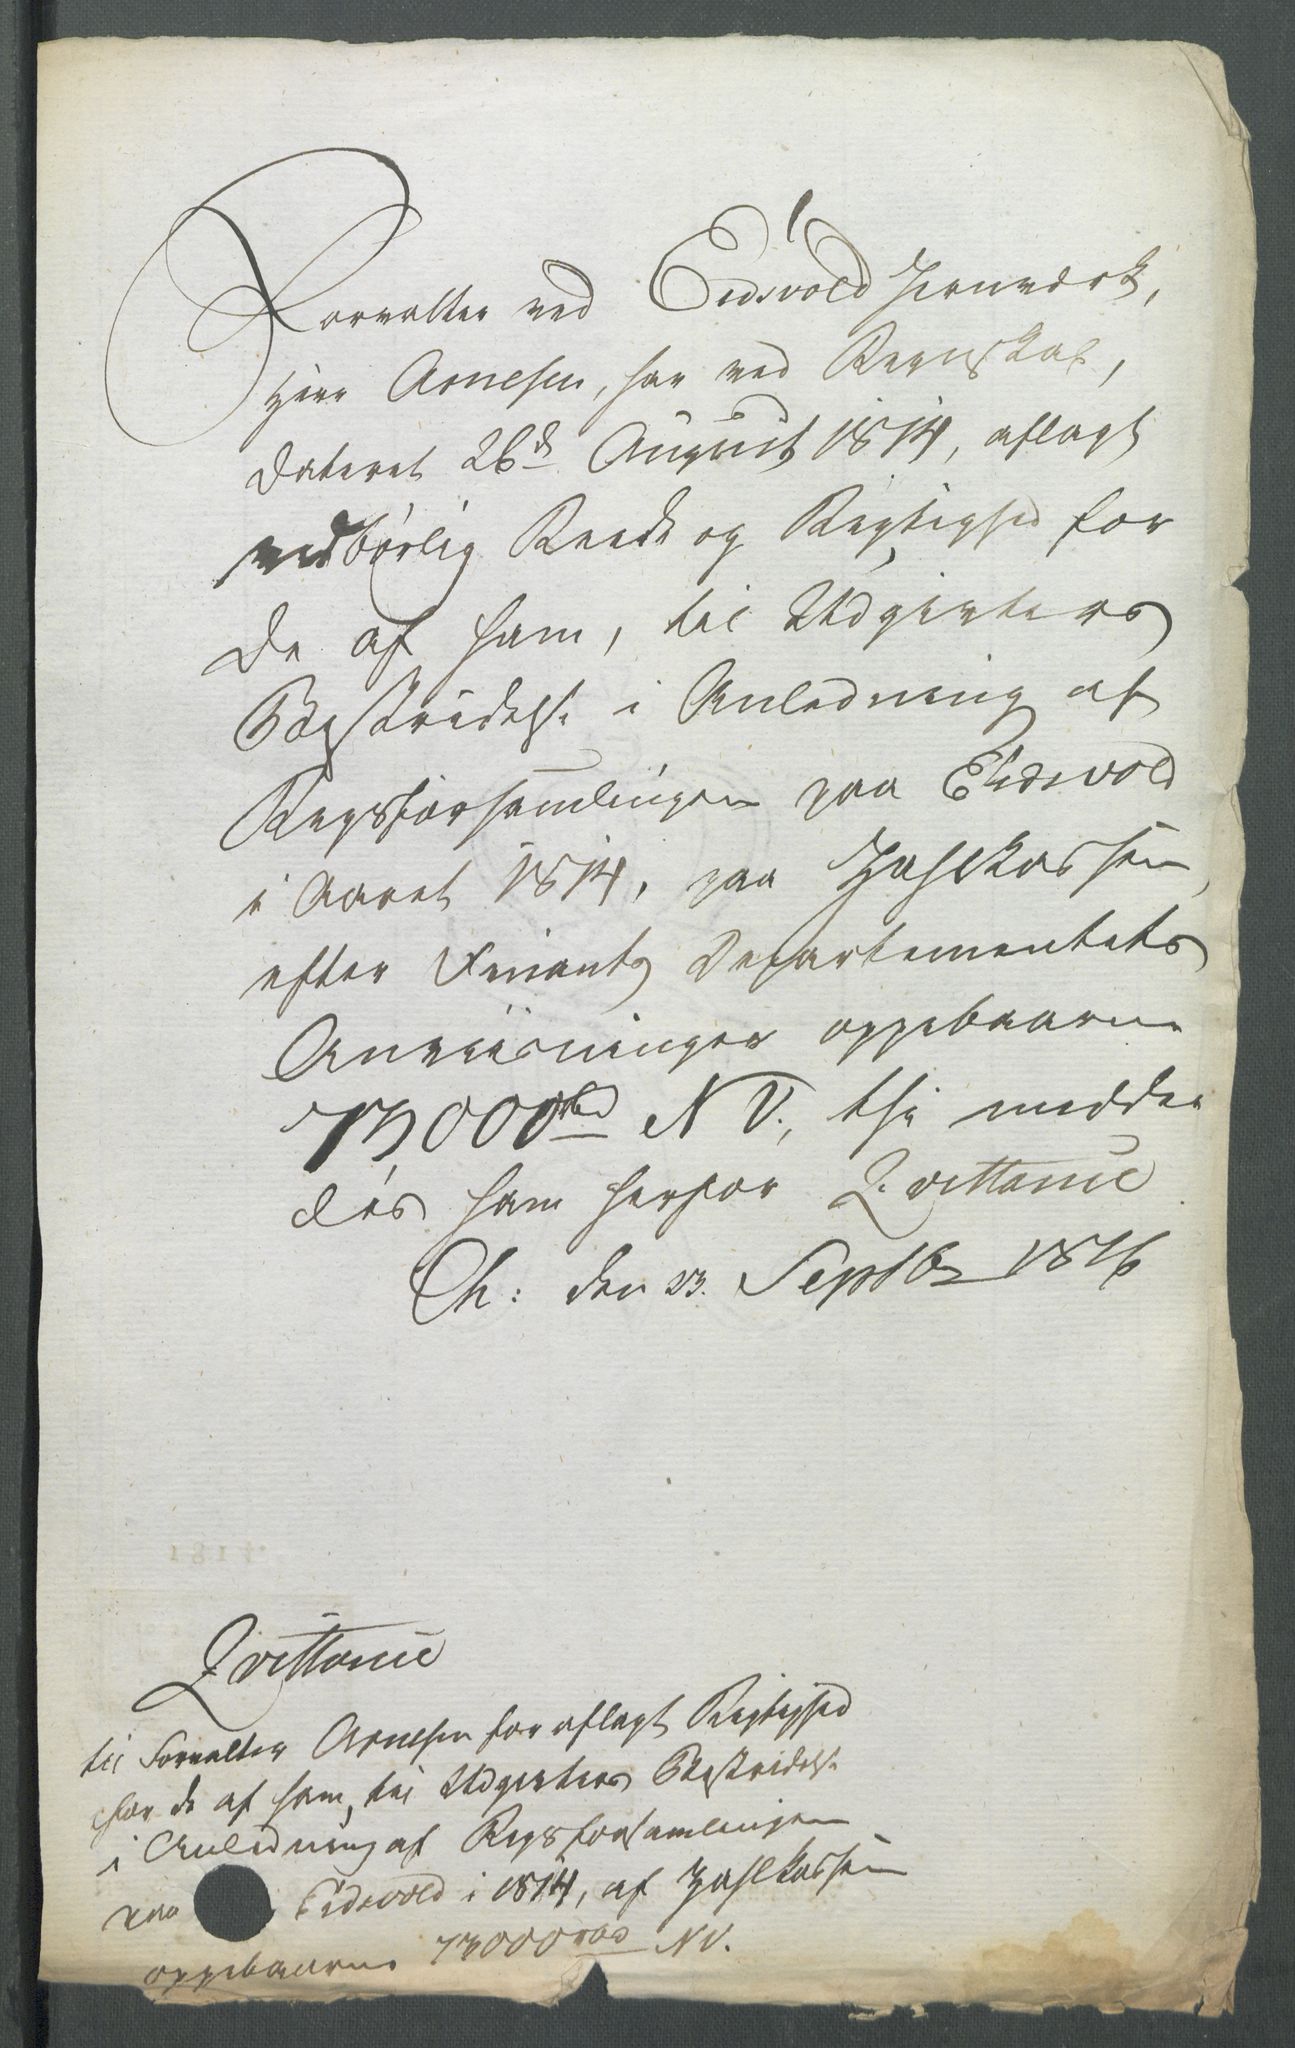 Forvalter ved Eidsvold Jernværk,
Herr Arnesen, har ved Regnskab,
dateret 26d August 1814, aflagt
vedbørlig Reede og Rigtighed for
de af ham, til Udgivters
Bestridelse i Anledning af
Rigsforsamlingen paa Eidsvold
i Aaret 1814, paa Zahlkassen,
efter Finants Departementets
Anviisninger oppebaarne
73000 rbd N V., thi medde
les ham herfor Qvittance
Ch: den 23. Septbr 1816
1814
Qvittance
til Forvalter Arnesen for aflagt Rigtighed
for de af ham, til Udgivters Bestridelse
i Anledning af Rigsforsamlingen
paa Eidsvold i 1814, af Zahlkassen
oppebaarne 73000 rbd NV.